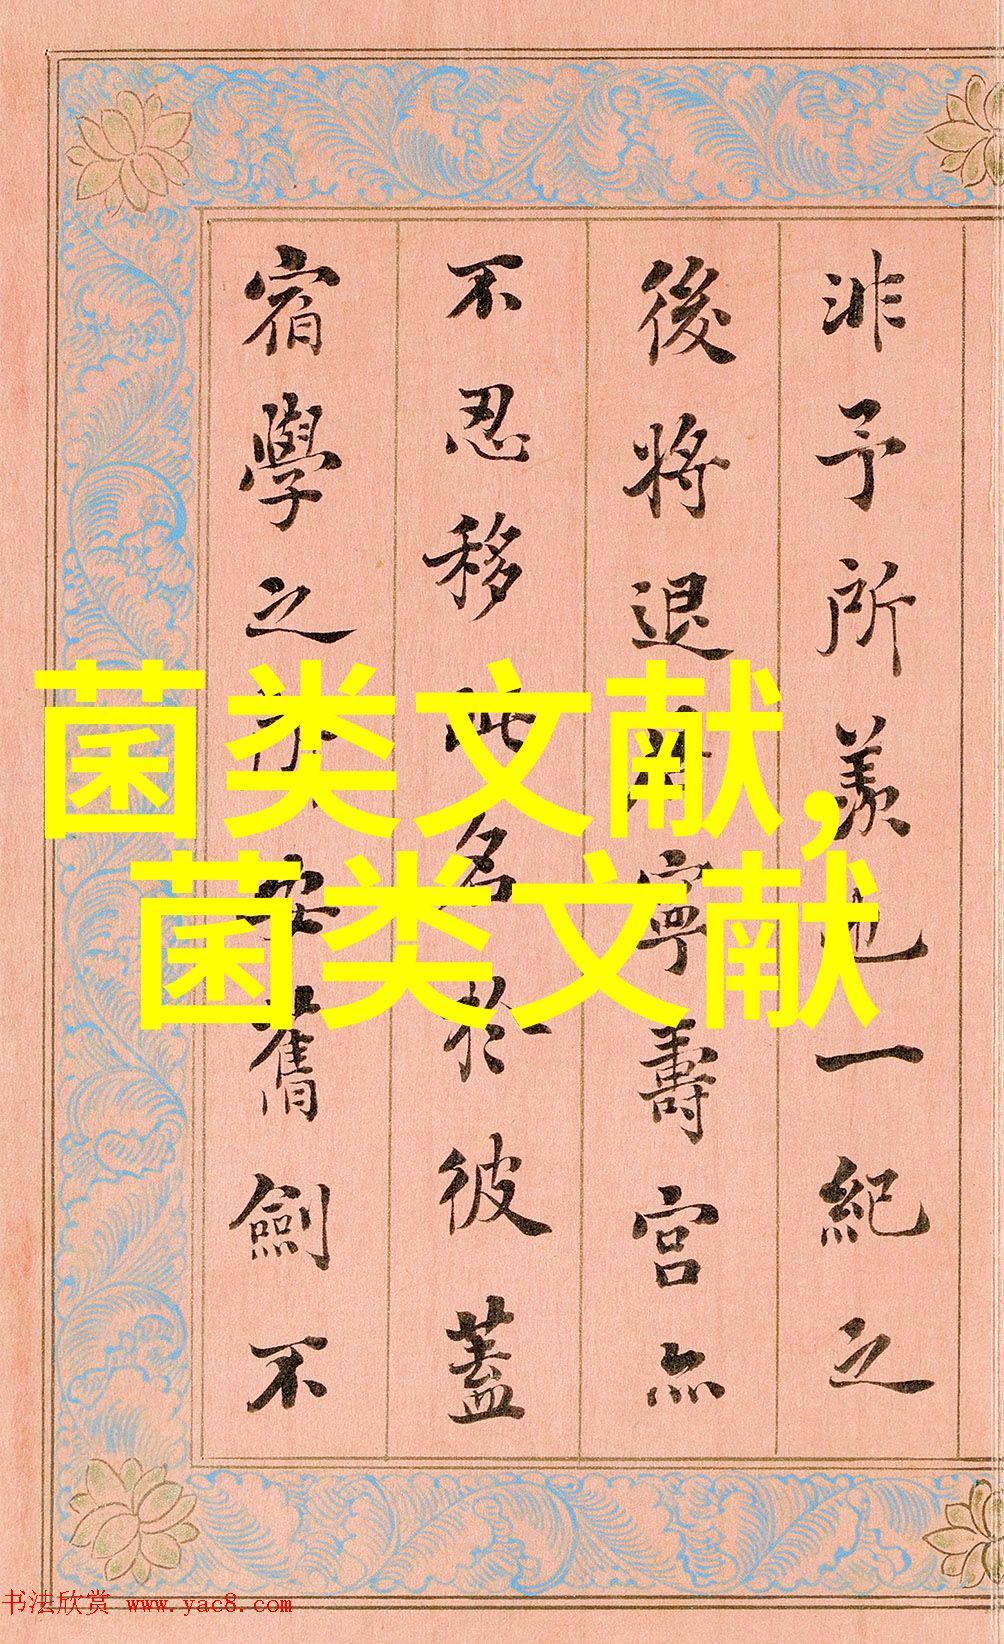 非予所羨也一紀之
後將退寧壽宮亦
不忍移此名於彼蓋
宿學之舊劍不
菌类文献,
菌类文献
书法欣赏 www.yac8.com